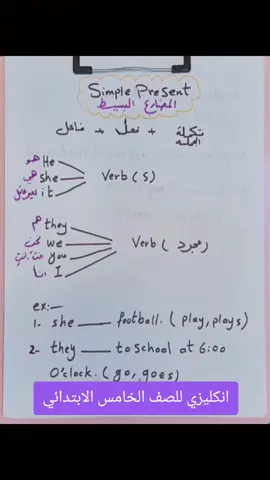 Simple Present
المضارع البسيط
فاعل + فعل + تكملة الجملة
هو He
هي she
لغير عاقل it
Verb (s)
هم they
نحن we
you
انا I
Verb (مجرد)
ex:-
1- she ____ football. (play, plays)
2- they ____ to school at 6:00
O'clock. (go, goes)
انكليزي للصف الخامس الابتدائي